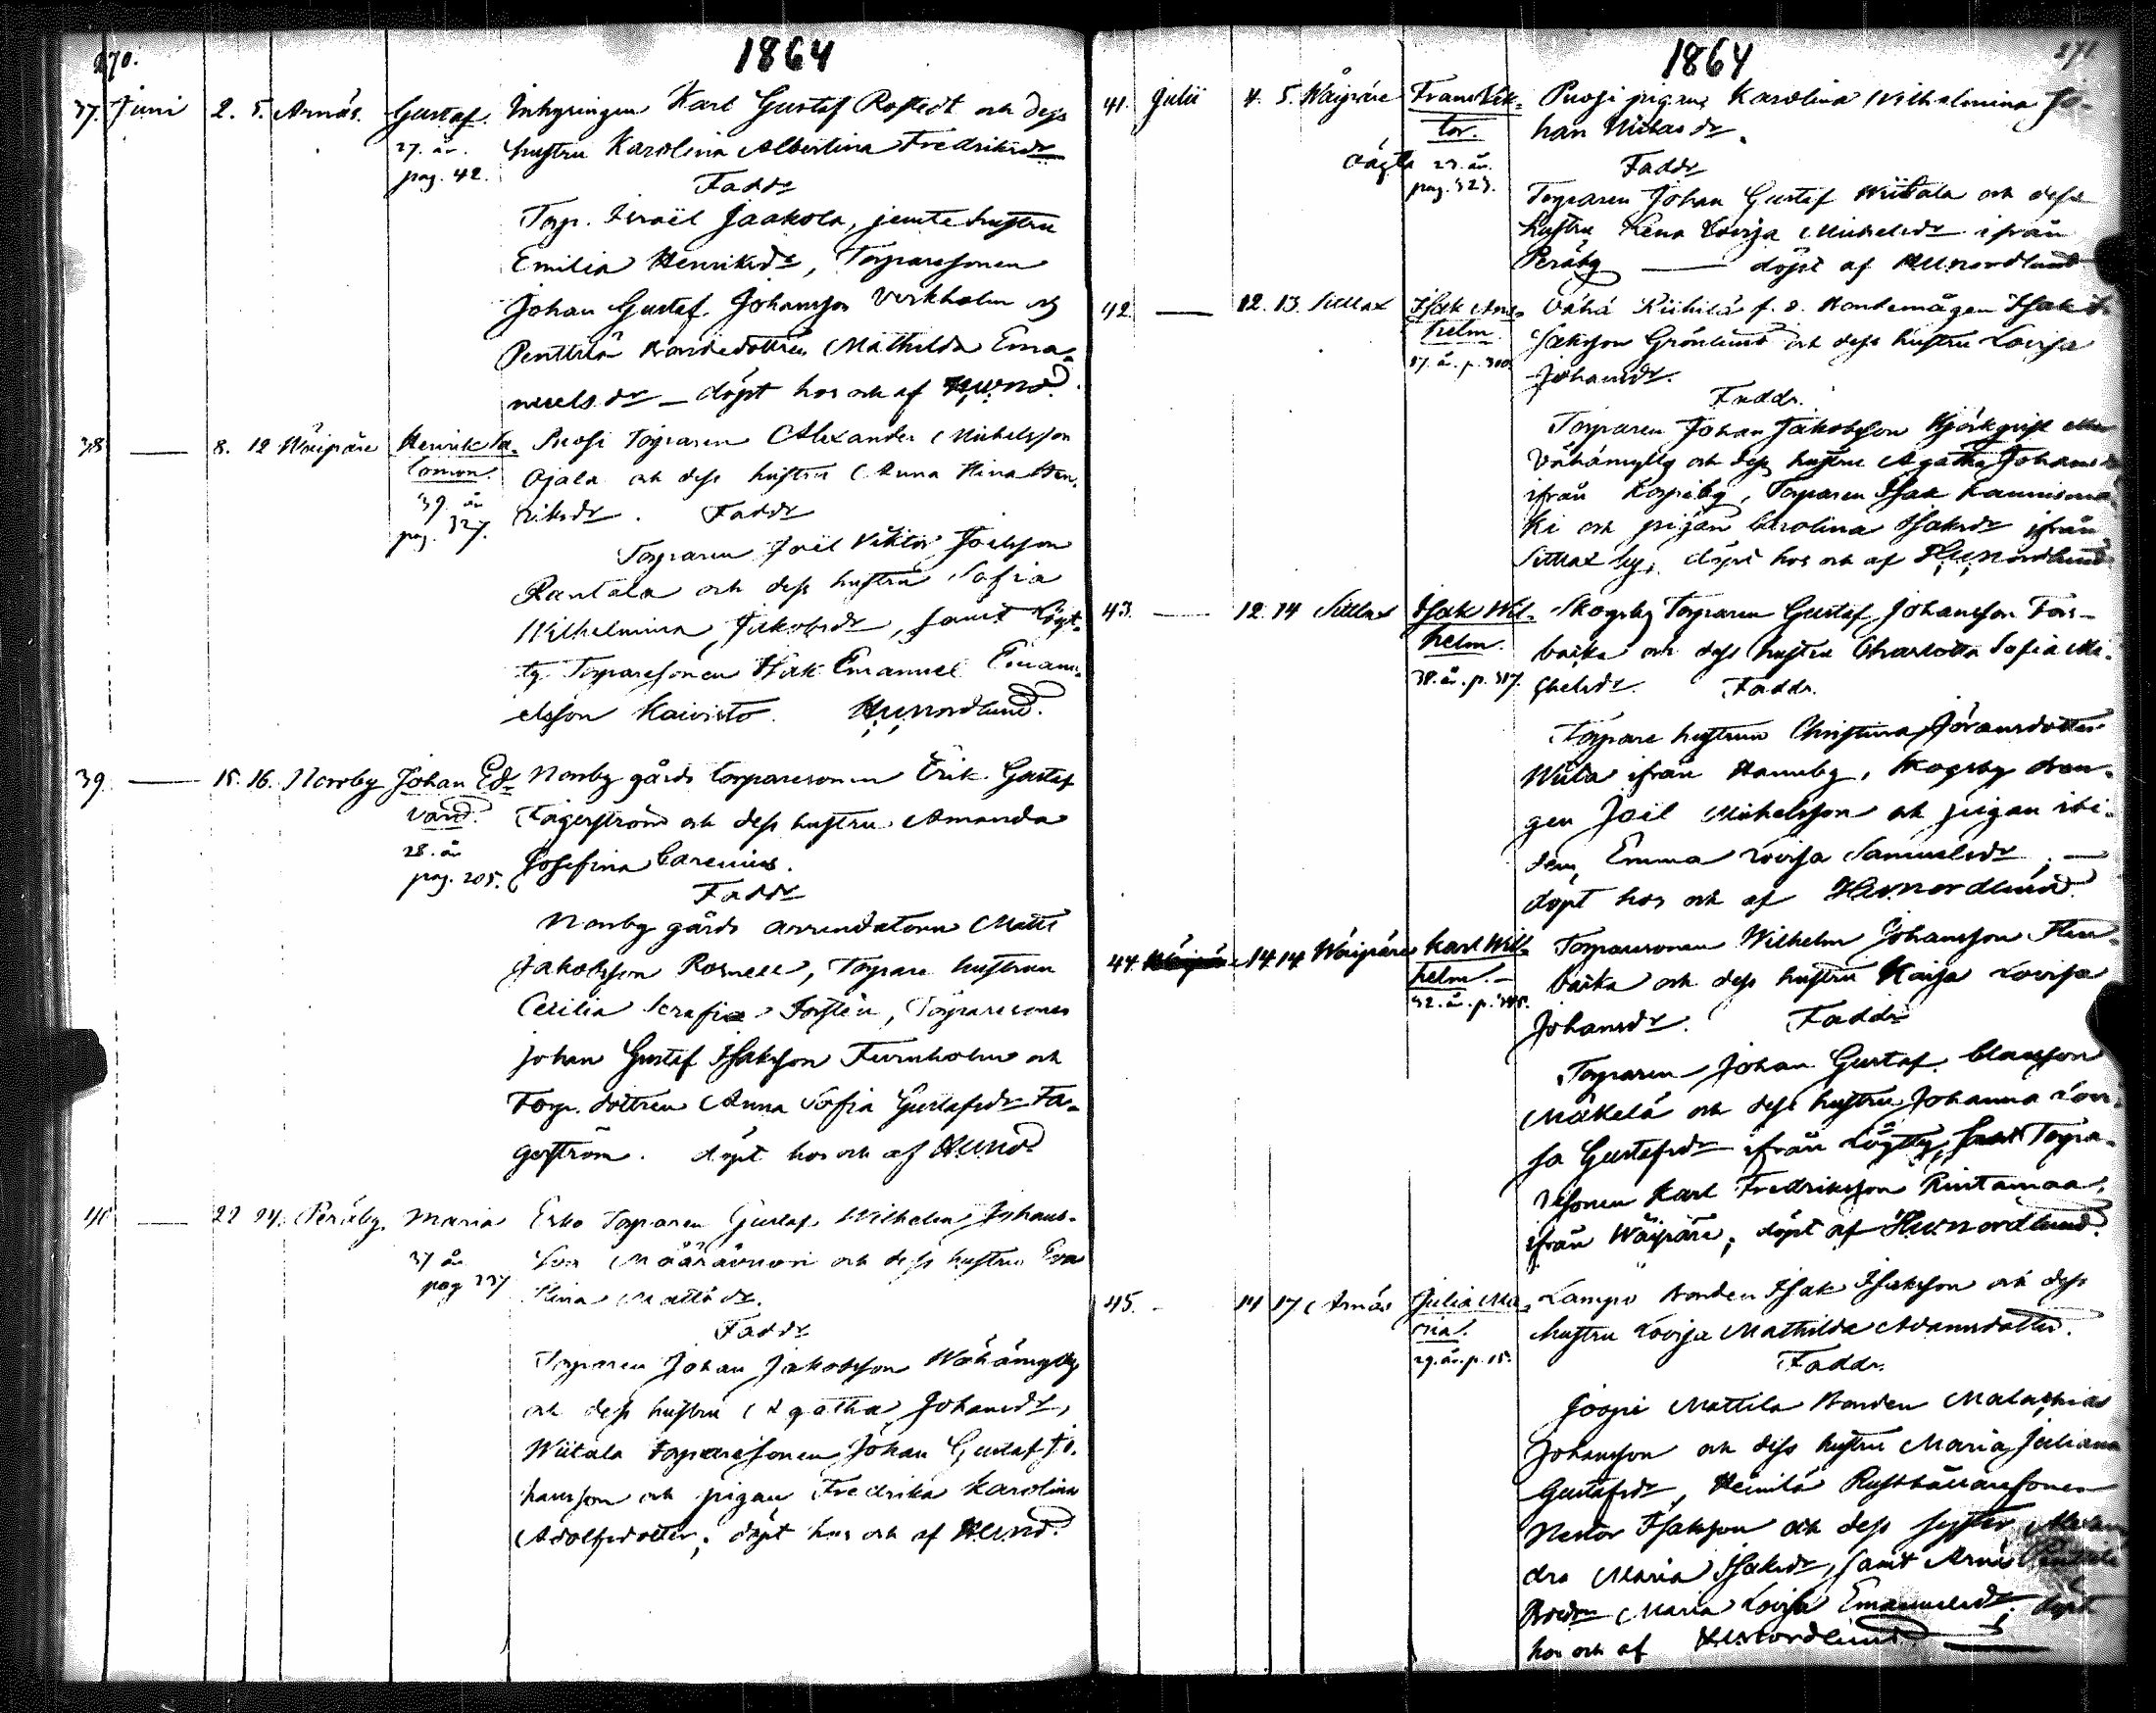 270.
1864
37. Juni 2. 5. Arnäs. Gustaf. Inhysingen Karl Gustaf Rostedt och dess
27. år. hustru Karolina Albertina Fredriksdr
pag. 42.
Faddr
Torp. Israël Jaakola, jemte hustru
Emilia Henriksdr, Torparesonen
Johan Gustaf Johansson Verkholm och
Penttilä bondedottren Mathilda Ema-
nuelsdr — döpt hos och af
38 — 8. 12 Wäipäre Henrik Sa- Puosi Torparen Alexander Michelsson
lomon. Ojala och dess hustru Anna Stina Hen-
39. år riksdr. Faddr
pag. 327.
Torparen Joël Viktor Joelsson
Rantala och dess hustru Sofia
Wilhelmina Jakobsdr, samt Lögt-
tg Torparesonen Isak Emanuel Emanu-
elsson Koivisto. HWNordlund.
39 — 15. 16. Norrby Johan Ed- Norrby gårds torparesonen Erik Gustaf
vard. Fagerström och dess hustru Amanda
28. år Josefina Carenius.
pag. 205.
Faddr
Norrby gårds arrendatorn Matts
Jakobsson Rosnell, Torpare hustrun
Cecilia Serafia Forstén, Torparesonen
Johan Gustaf Isaksson Furuholm och
Torp. dottren Anna Sofia Gustafsdr Fa-
gerström. döpt hos och af HWNd
40 — 22 24. Peräby. Maria Erko Torparen Gustaf Wilhelm Johans-
37 år son Määrävuori och dess hustru Eva
pag 337 Stina Mattsdr.
Faddr
Torparen Johan Jakobsson Wähämylly
och dess hustru Agatha Johansdr,
Wiitala torparesonen Johan Gustaf Jo-
hansson och pigan Fredrika Karolina
Adolfsdotter; döpt hos och af HWNd.
271
1864
41. Julii 4. 5. Wäipäre Frans Vik- Puosi pigans Karolina Wilhelmina Jo-
tor. han Niklasdr.
oägta 23. år.
pag. 323.
Faddr
Torparen Johan Gustaf Wiitala och dess
hustru Lena Lovisa Michelsdr ifrån
Peräby — döpt af HWNordlund
42. — 12. 13. Sittlax Isak Ans- Vähä Riihilä f. d. Bondemågen Isak I-
helm saksson Grönlund och dess hustru Lovisa
Johansdr.
Faddr.
Torparen Johan Jakobsson Björkqvist eller
Vähämylly och dess hustru Agatha Johansdr
ifrån Korpiby, Torparen Isak Kaunismä-
ki och pigan Carolina Isaksdr ifrån
Sittlax by; döpt hos och af HWNordlund
43. — 12. 14 Sittlax Isak Wil- Skogsby Torparen Gustaf Johansson Fors-
helm. backa och dess hustru Charlotta Sofia Mi-
38. år. p. 317. chelsdr. Faddr.
Torpare hustrun Christina Göransdotter
Wiita ifrån Hannuby, Skogsby dren-
gen Joël Michelsson och pigan ibi-
dem, Emma Lovisa Samuelsdr; —
döpt hos och af HWNordlund.
44. 14. 14. Wäipäre Karl Wil- Torparesonen Wilhelm Johansson Sten-
helm. — backa och dess hustru Kaisa Lovisa
Johansdr. Faddr
Torparen Johan Gustaf Clasesson
Mäkelä och dess hustru Johanna Lovi-
sa Gustafsdr ifrån Lögtty, samt Torpa-
resonen Karl Fredriksson Rintamaa,
ifrån Wäipäre; döpt af HWNordlund.
45. — 14 17 Arnäs Julia Ma- Lampo Bonden Isak Isaksson och dess
ria. hustru Lovisa Mathilda Adamsdotter.
29. år. p. 15.
Faddr.
Jooppi Mattila Bonden Malachias
Johansson och dess hustru Maria Juliana
Gustafsdr, Heinilä Rusthållaresonen
Nestor Isaksson och dess syster
dra Maria Isaksdr, samt Arnäs
Maria Lovisa Emanuelsdr; döpt
hos och af HWNordlund